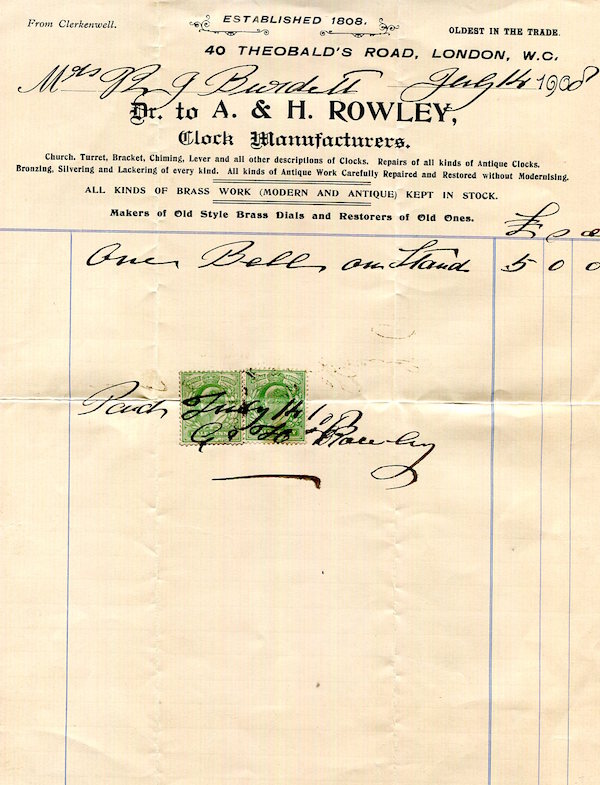 From Clerkenwell.
ESTABLISHED 1808.
OLDEST IN THE TRADE.
40 THEOBALD'S ROAD, LONDON, W.C.
Mrs R G Burdett July 14 1908
Dr. to A. & H. ROWLEY,
Clock Manufacturers.
Church, Turret, Bracket, Chiming, Lever and all other descriptions of Clocks. Repairs of all kinds of Antique Clocks.
Bronzing, Silvering and Lackering of every kind. All kinds of Antique Work Carefully Repaired and Restored without Modernising.
ALL KINDS OF BRASS WORK (MODERN AND ANTIQUE) KEPT IN STOCK.
Makers of Old Style Brass Dials and Restorers of Old Ones.
£ s d
One Bell on Stand 5 0 0
Paid July 14 / 08
Rowley